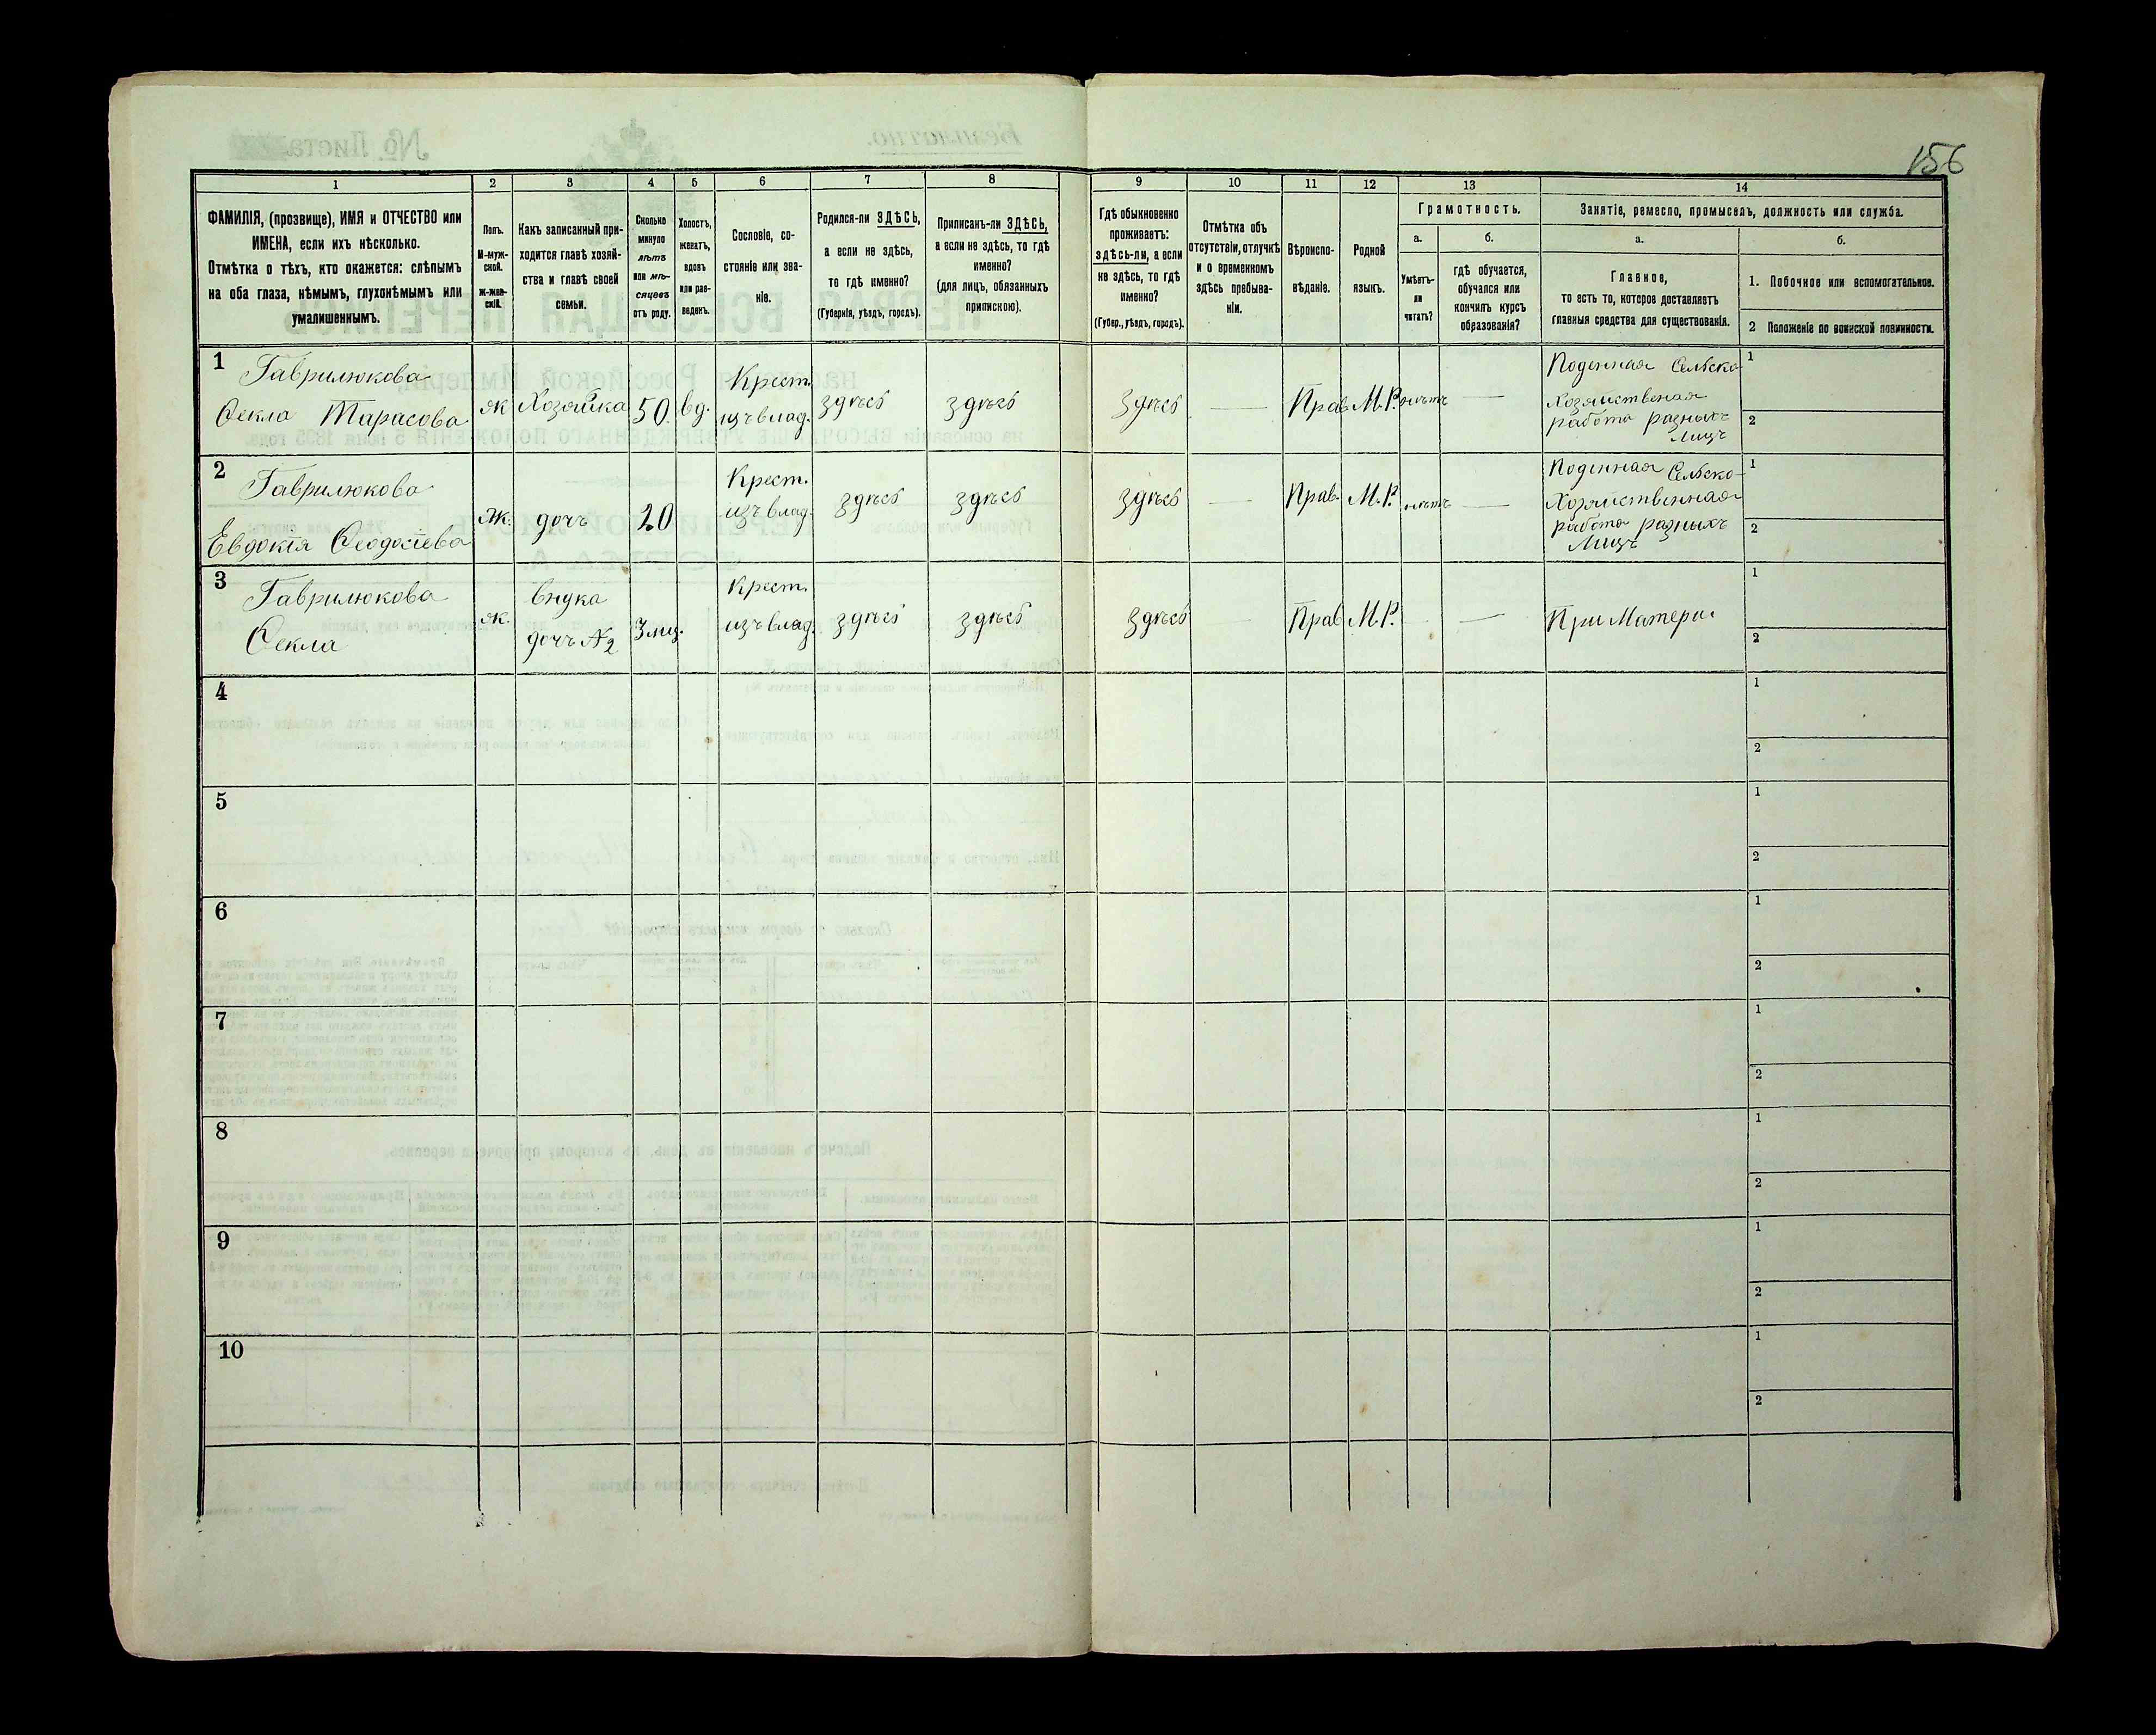 156
1
2
3
4
5
6
7
8
9
10
11
12
13
14
ФАМИЛІЯ, (прозвище), ИМЯ и ОТЧЕСТВО или
ИМЕНА, если ихъ нѣсколько.
Отмѣтка о тѣхъ, кто окажется: слѣпымъ
на оба глаза, нѣмымъ, глухонѣмымъ или
умалишеннымъ.
Полъ.
М-муж-
ской.
ж-жен-
скій.
Какъ записанный при-
ходится главѣ хозяй-
ства и главѣ своей
семьи.
Сколько
минуло
лѣтъ
или мѣ-
сяцевъ
отъ роду.
Холостъ,
женатъ,
вдовъ
или раз-
веденъ.
Сословіе, со-
стояніе или зва-
ніе.
Родился-ли ЗДѢСЬ,
а если не здѣсь,
то гдѣ именно?
(Губернія, уѣздъ, городъ).
Приписанъ-ли ЗДѢСЬ,
а если не здѣсь, то гдѣ
именно?
(для лицъ, обязанныхъ
припискою).
Гдѣ обыкновенно
проживаетъ:
здѣсь-ли, а если
не здѣсь, то гдѣ
именно?
(Губер., уѣздъ, городъ).
Отмѣтка объ
отсутствіи, отлучкѣ
и о временномъ
здѣсь пребыва-
ніи.
Вѣроиспо-
вѣданіе.
Родной
языкъ.
Грамотность.
а.
Умѣетъ-
ли
читать?
б.
гдѣ обучается,
обучался или
кончилъ курсъ
образованія?
Занятіе, ремесло, промыселъ, должность или служба.
а.
Главное,
то есть то, которое доставляетъ
главныя средства для существованія.
б.
1. Побочное или вспомогательное.
2 Положеніе по воинской повинности.
1
Гаврилюкова
Ѳекла Тарасова
ж
Хозяйка
50.
вд.
Крест.
изъ влад.
здѣсь
здѣсь
здѣсь
—
Прав
М.Р.
нѣтъ
—
Поденная Сельско
Хозяйственная
работа разныхъ
Лицъ
1
2
2
Гаврилюкова
Евдокія Ѳеодосіева
ж.
дочь
20
Крест.
изъ влад.
здѣсь
здѣсь
здѣсь
—
Прав.
М.Р.
нѣтъ
—
Поденная Сельско-
Хозяйственная
работа разныхъ
Лицъ
1
2
3
Гаврилюкова
Ѳекла
ж.
Внука
дочь №2
3 мц.
Крест.
изъ влад.
здѣсь
здѣсь
здѣсь
—
Прав
М.Р.
—
При Матери
1
2
4
1
2
5
1
2
6
1
2
7
1
2
8
1
2
9
1
2
10
1
2